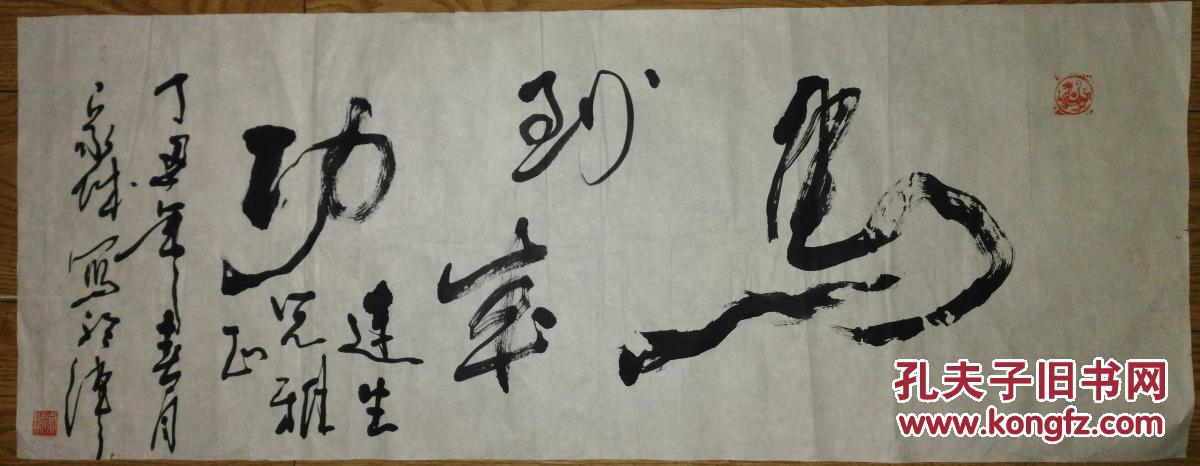 馬
到成
功
達生
兄雅
正
丁丑年春月
家城寫於津
孔夫子旧书网
www.kongfz.com